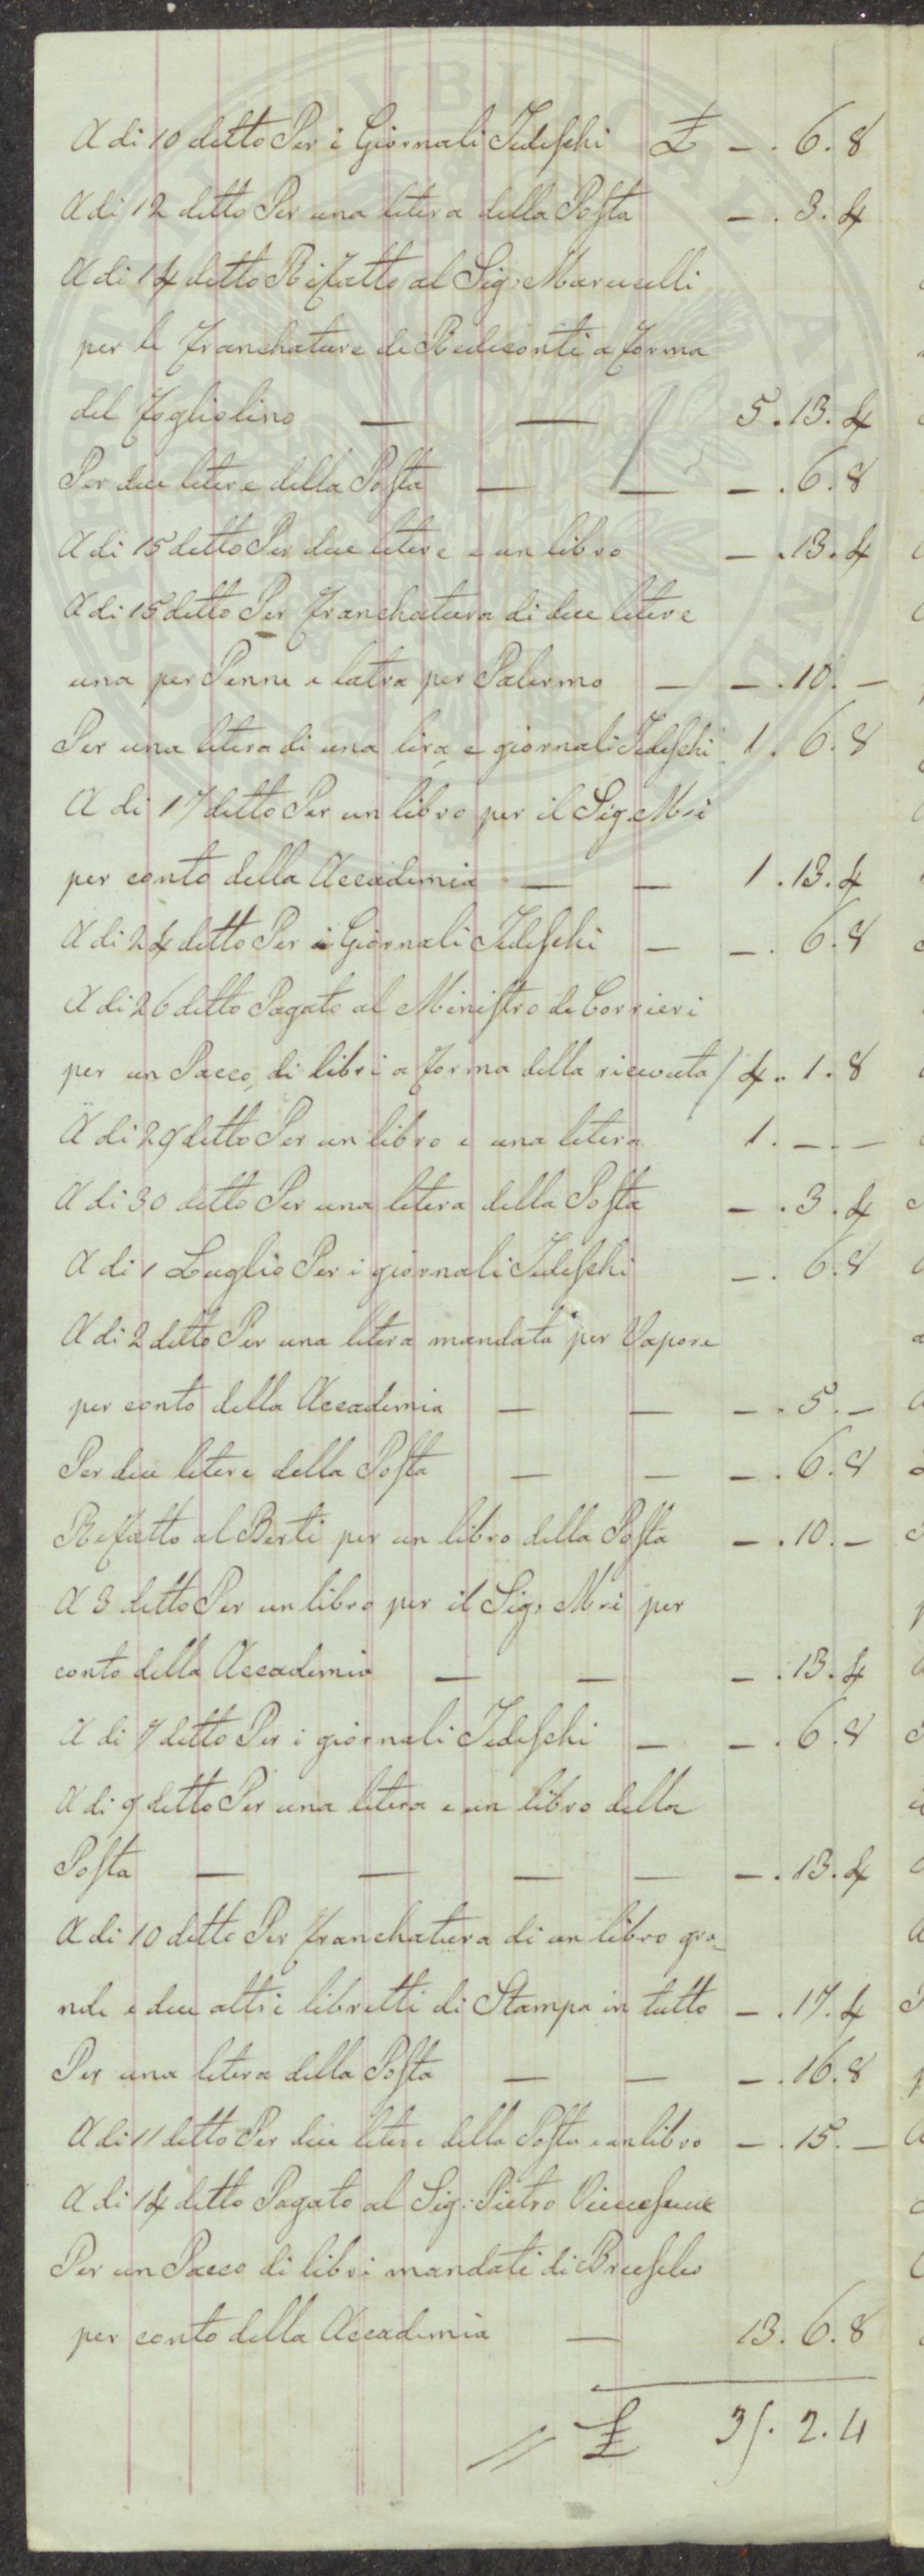 A di 10 detto Per i Giornali Tedeschi £ —. 6. 8
A di 12 detto Per una litera della Posta —. 3. 4
A di 14 detto Rifatto al Sig: Marucelli
per le franchature de Rediconti a forma
del fogliolino — — 5. 13. 4
Per due litere della Posta — — —. 6. 8
A di 15 detto Per due litere e un libro —. 13. 4
A di 15 detto Per franchatura di due litere
una per Penne e latra per Palermo — —. 10. —
Per una litera di una lira e giornali Tedeschi 1. 6. 8
A di 17 detto Per un libro per il Sig. Mri
per conto della Accademia — — 1. 13. 4
A di 24 detto Per i Giornali Tedeschi — —. 6. 8
A di 26 detto Pagato al Ministro de Corrieri
per un Pacco di libri a forma della ricevuta / 4. 1. 8
A di 29 detto Per un libro e una litera 1. —. —
A di 30 detto Per una litera della Posta —. 3. 4
A di 1 Luglio Per i giornali Tedeschi —. 6. 8
A di 2 detto Per una litera mandata per Vapore
per conto della Accademia — — —. 5. —
Per due litere della Posta — — —. 6. 8
Rifatto al Berti per un libro della Posta —. 10. —
A 3 detto Per un libro per il Sig. Mri per
conto della Accademia — — —. 13. 4
A di 7 detto Per i giornali Tedeschi — —. 6. 8
A di 9 detto Per una litera e un libro della
Posta — — — — —. 13. 4
A di 10 detto Per franchatura di un libro gra-
nde e due altri libretti di Stampa in tutto —. 17. 4
Per una litera della Posta — — —. 16. 8
A di 11 detto Per due litere della Posta e un libro —. 15. —
A di 14 detto Pagato al Sig: Pietro
Per un Pacco di libri mandati di Bruseles
per conto della Accademia — 13. 6. 8
// £ 35. 2. 4